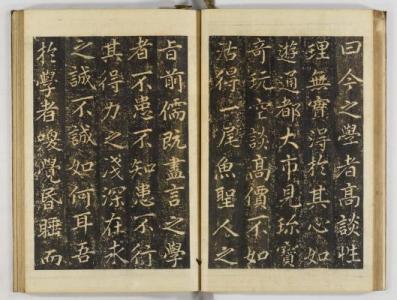 曰今之學者高談性
理無實得於其心如
遊通都大市見珎寶
奇玩空談高價不如
沽得一尾魚聖人之
旨前儒既盡言之學
者不患不知患不行
其得力之淺深在求
之誠不誠如何耳吾
於學者嗖覺昏睡而